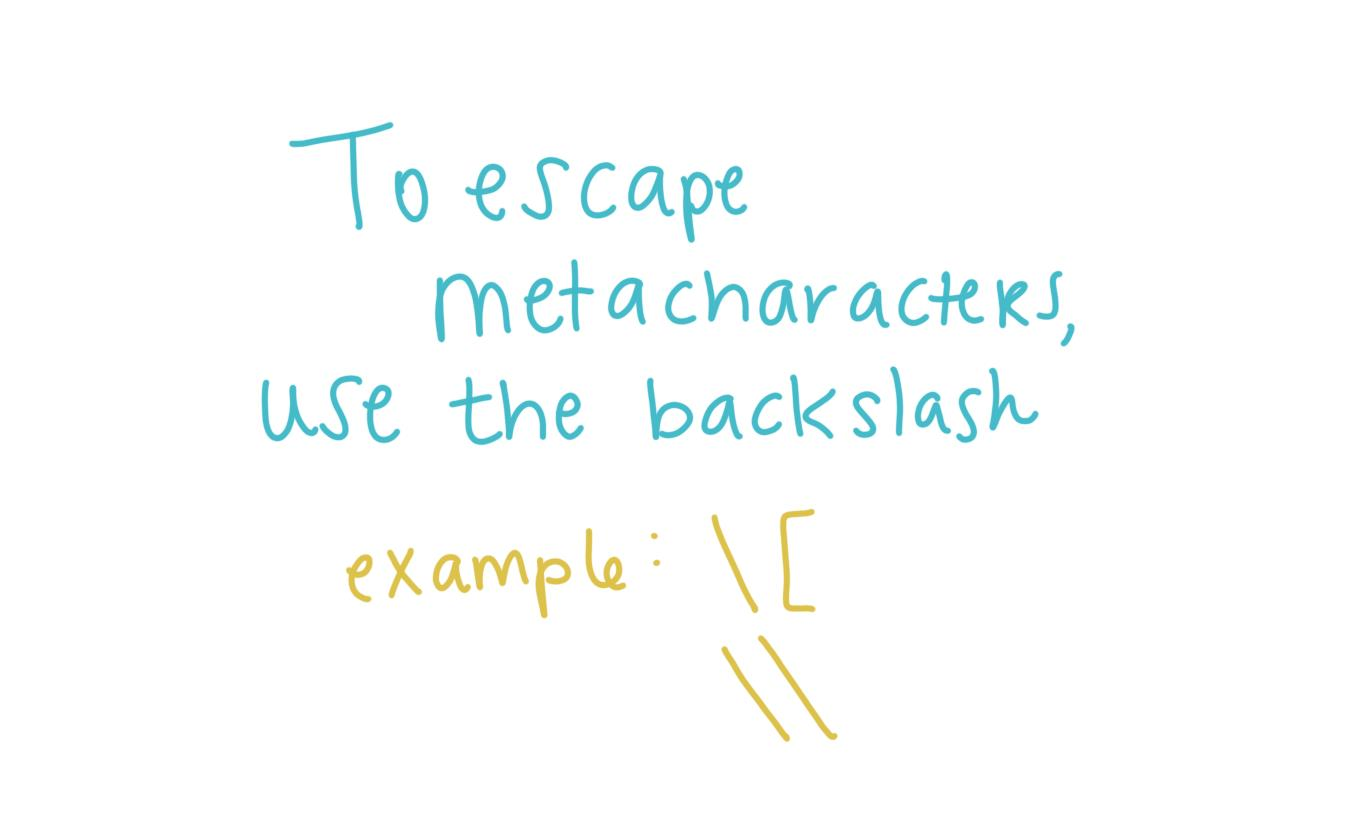 To escape
metacharacters,
use the backslash
example: \[
\\